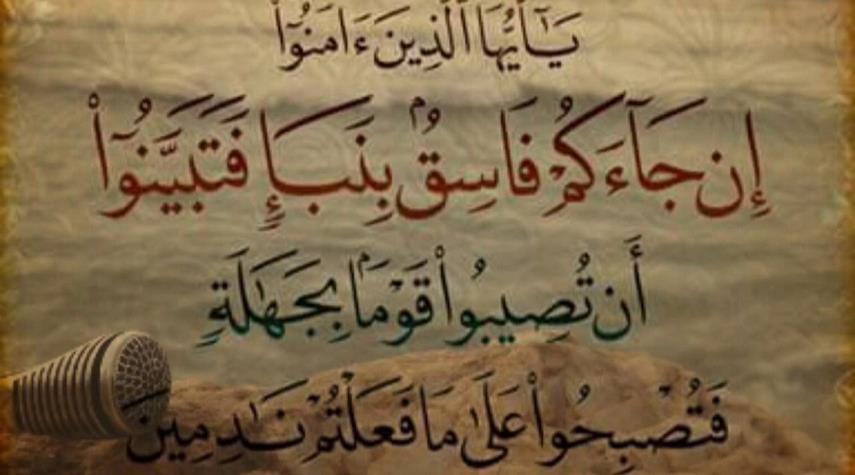 يَـٰٓأَيُّهَا ٱلَّذِينَ ءَامَنُوٓا۟
إِن جَآءَكُمْ فَاسِقٌۢ بِنَبَإٍ فَتَبَيَّنُوٓا۟
أَن تُصِيبُوا۟ قَوْمَۢا بِجَهَـٰلَةٍ
فَتُصْبِحُوا۟ عَلَىٰ مَا فَعَلْتُمْ نَـٰدِمِينَ